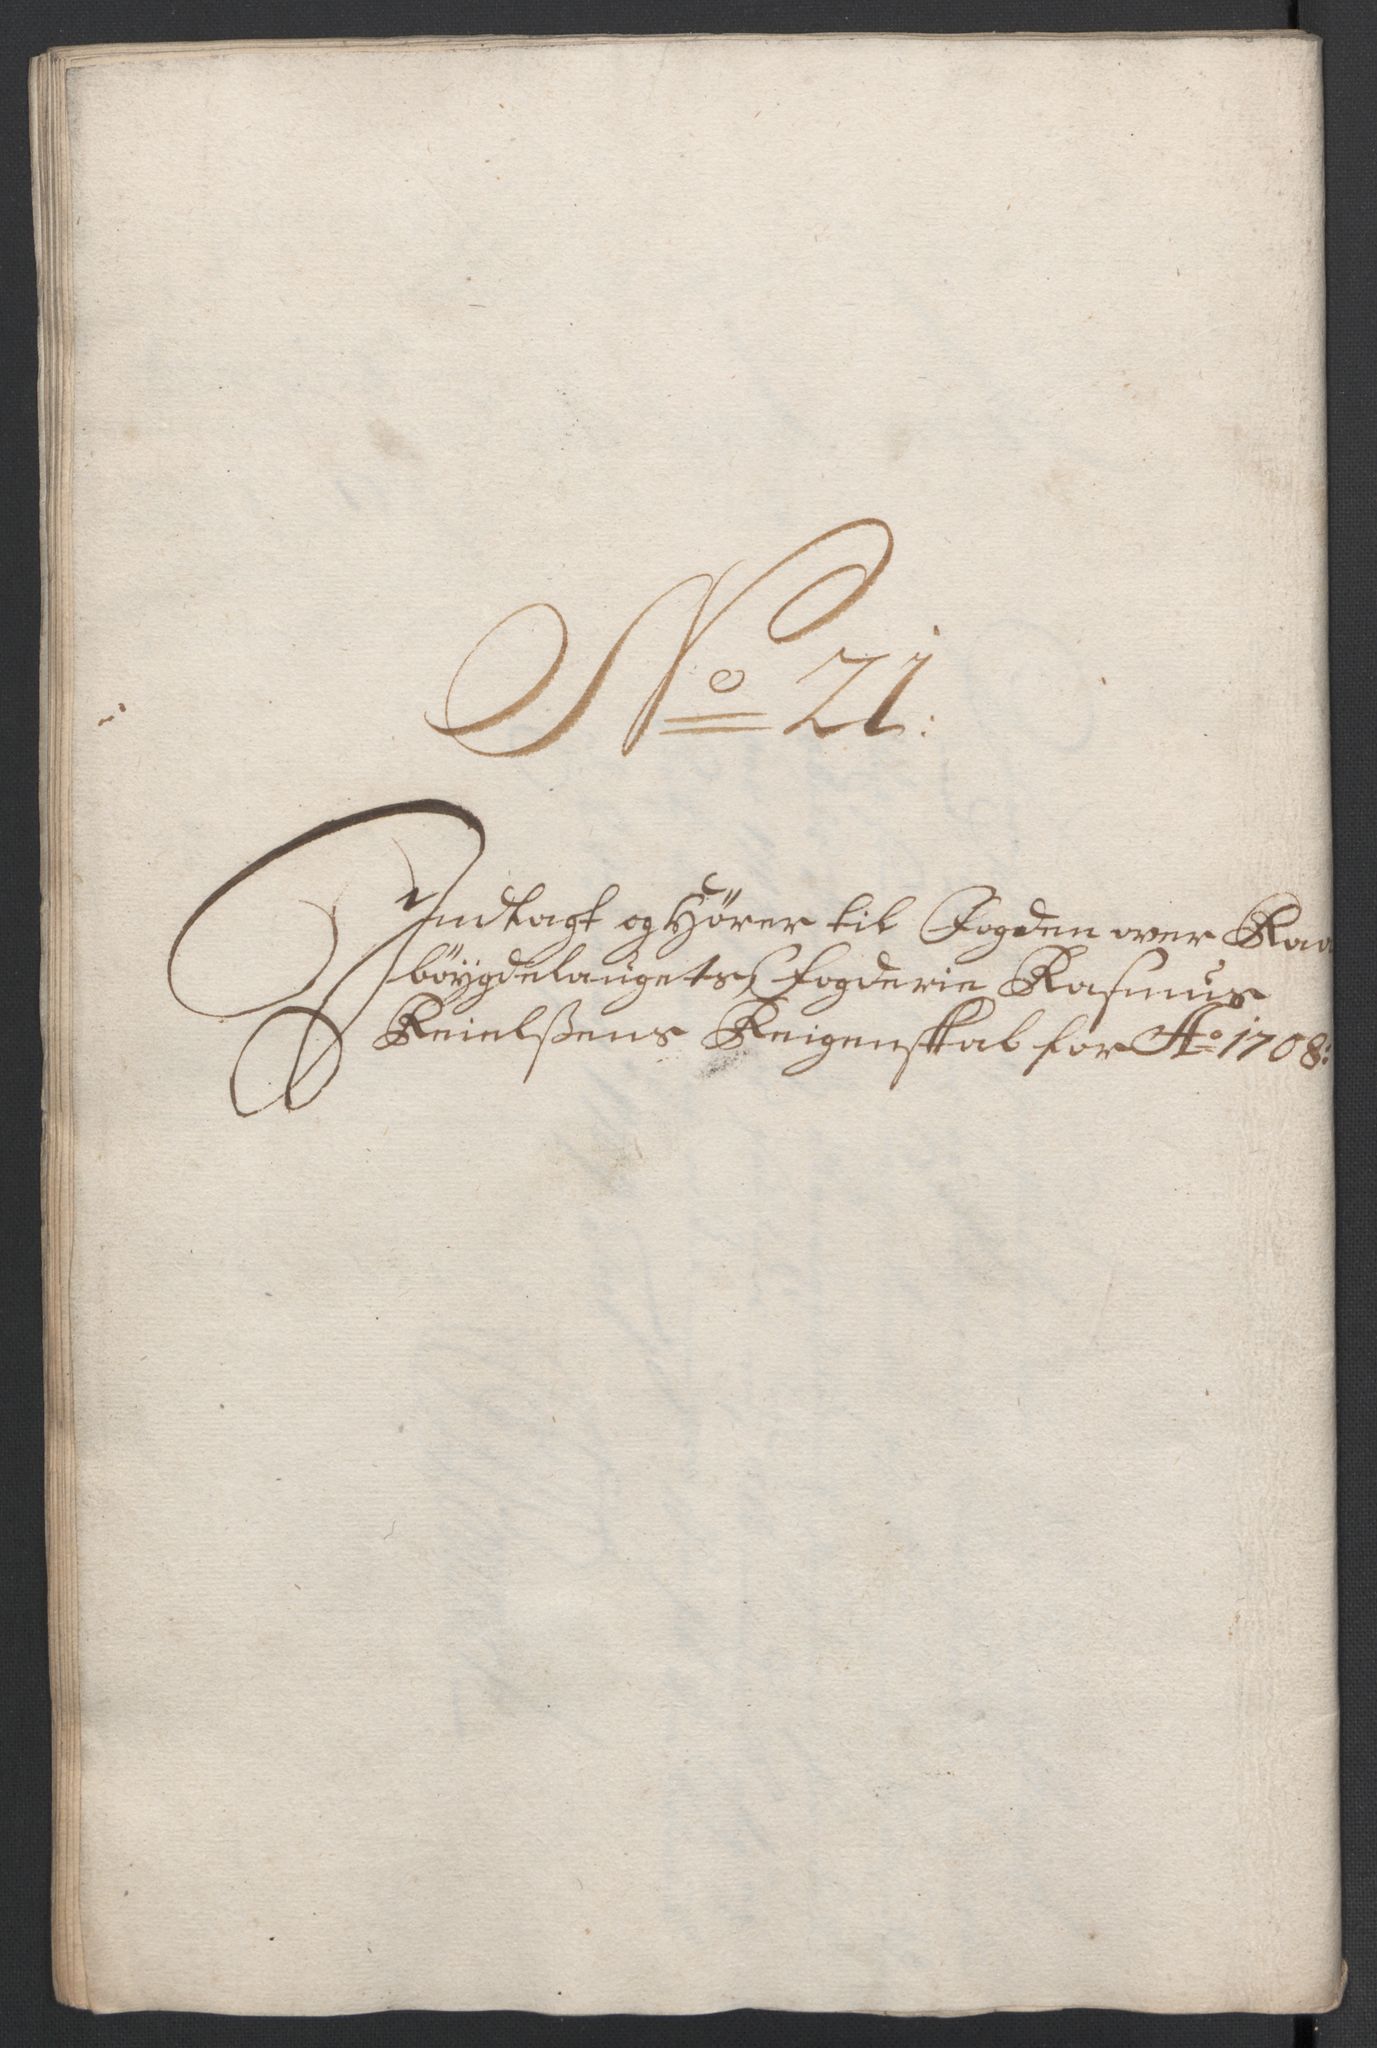 No 21:
Indlagt og Hörer til Fogden over Raa
böygdelaugets Fogderie Rasmus
Keielssens Reigenskab for Ao 1708: